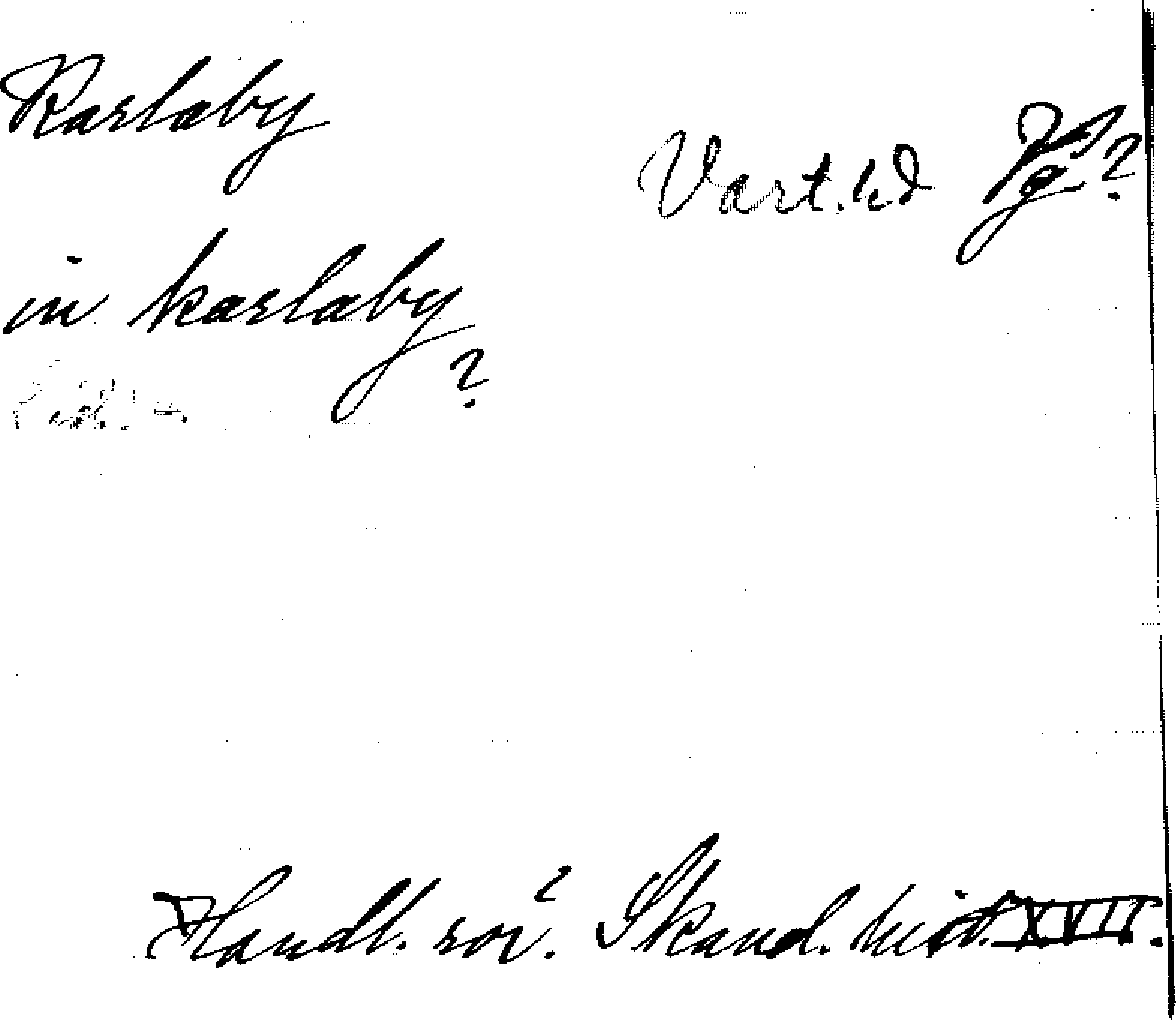 Karlaby
Vart. hd ?
in karlaby
?
Handl. rör. Skand. hist. XVII.